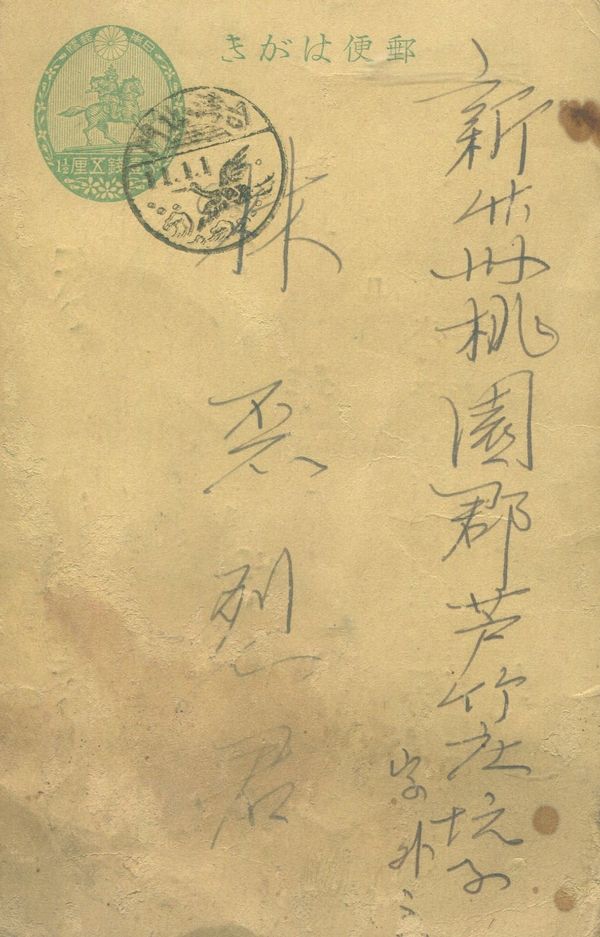 郵便はがき
大日本郵便
壹錢五厘 1½
11.1.1
新竹州桃園郡芦竹庄坑子
字外
林
烈
君